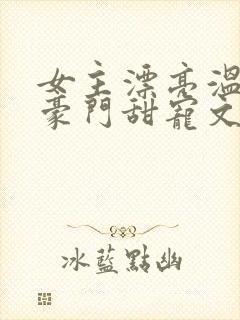 女主漂亮溫
豪門甜寵文
冰藍點幽